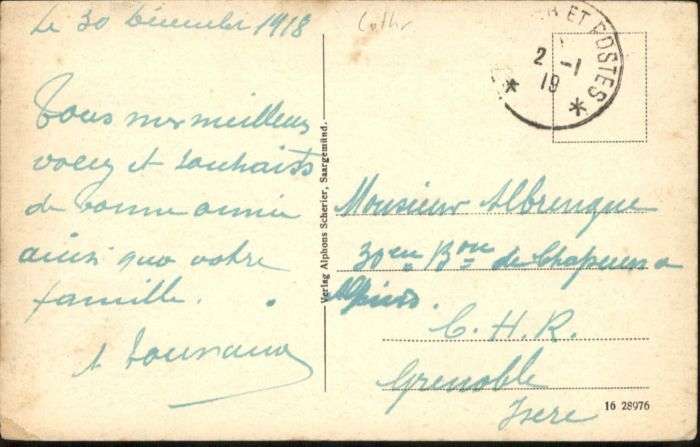 Le 30 Décembre 1918
Tous mes meilleurs
voeux et souhaits
de bonne année
ainsi que votre
famille.
Verlag Alphons Scherier, Saargemünd.
ET POSTES
2 -1
19
Monsieur Albrengue
30em Bon de Chasseurs a
Alpins.
C. H. R.
Grenoble
Isere
16 28976